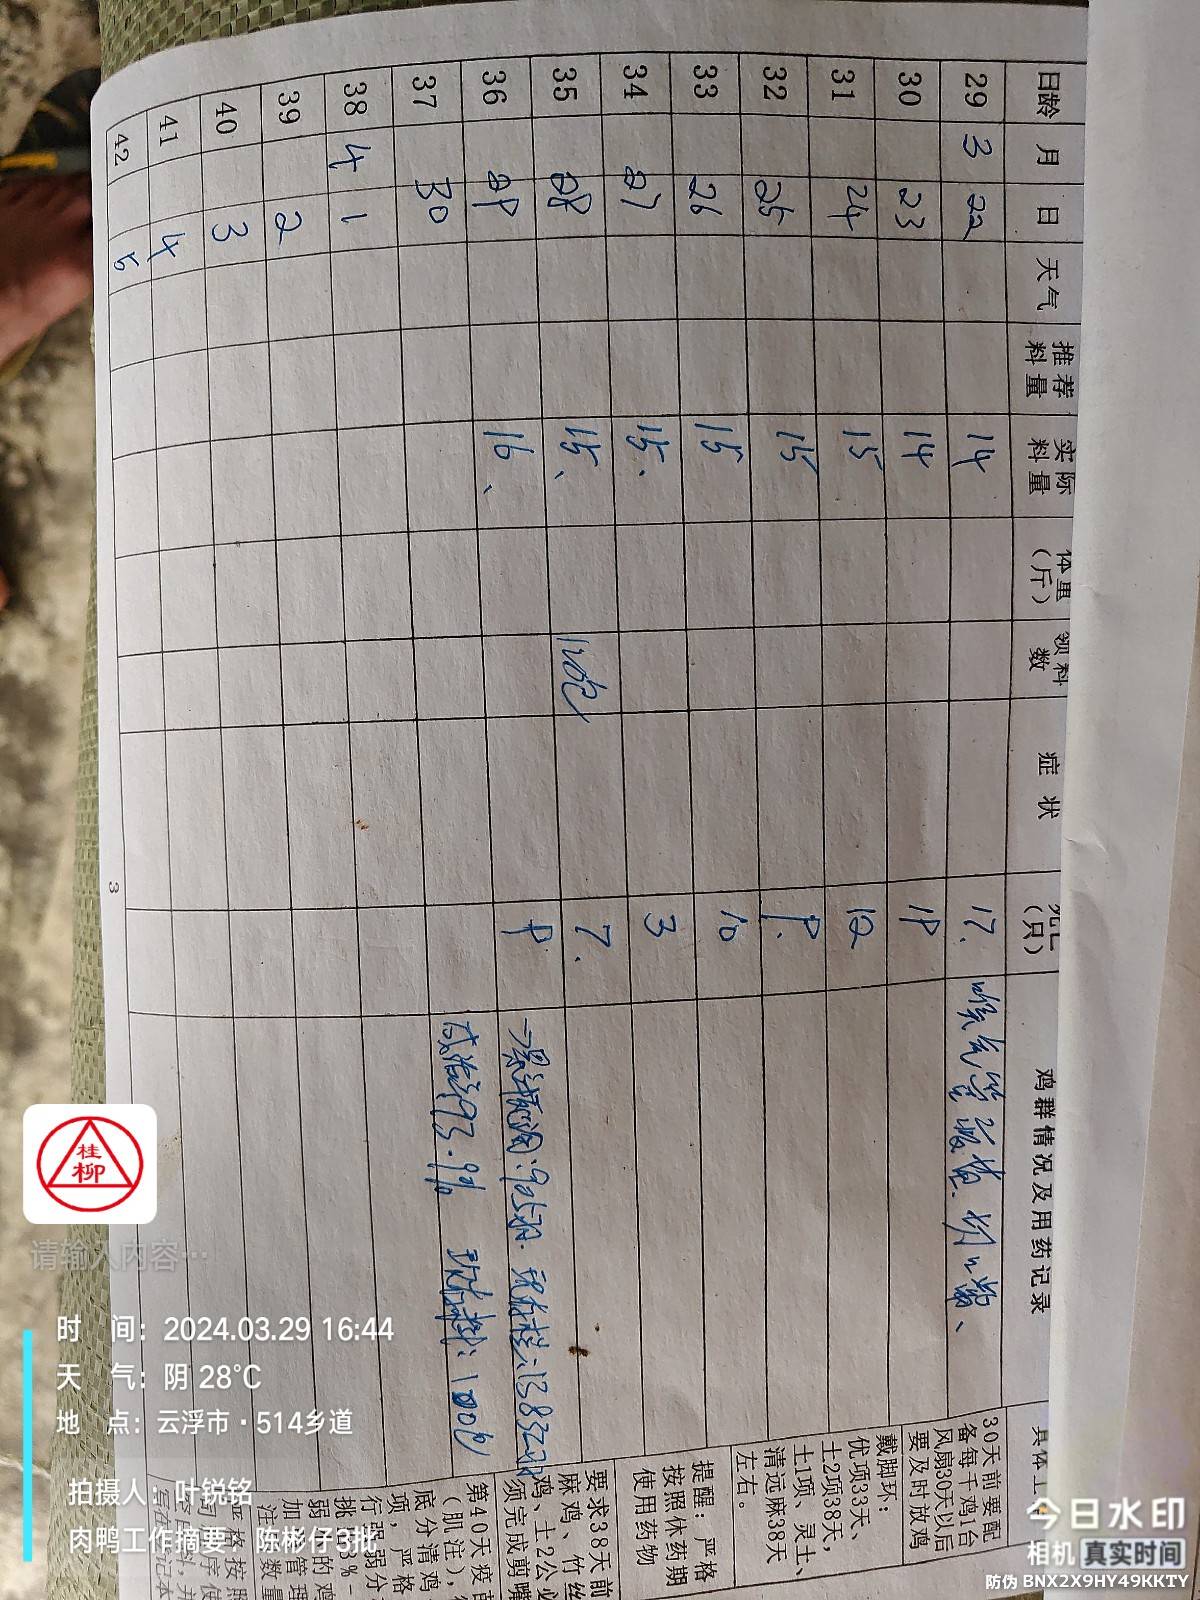 日龄 月 日 天气 推荐料量 实际料量 体重（斤） 领料数 症状 死亡（只） 鸡群情况及用药记录
29 3 22 14 17.
30 23 14 19
31 24 15 12
32 25 15 9.
33 26 15 10
34 27 15、 3
35 28 15、 120包 7.
36 29 16、 9
37 30 成活率93.9% 现存料：100包
38 4 1
39 2
40 3
41 4
42 5
30天前要配
备每千鸡1台
风扇30天以后
要及时放鸡
戴脚环：
优项33天，
土2项38天，
土1项、灵土、
清远麻38天
左右。
提醒：严格
按照休药期
使用药物
要求38天前
麻鸡、竹丝
鸡、土2公必
须完成剪嘴
第40天疫苗
（肌注），
底分清鸡
项，严格
行强弱分
挑出3%-
弱小的鸡
加强管理
注
3
桂柳
请输入内容…
时 间：2024.03.29 16:44
天 气：阴 28°C
地 点：云浮市·514乡道
拍摄人：叶锐铭
肉鸭工作摘要：陈彬仔3批
今日水印
相机 真实时间
防伪 BNX2X9HY49KKTY